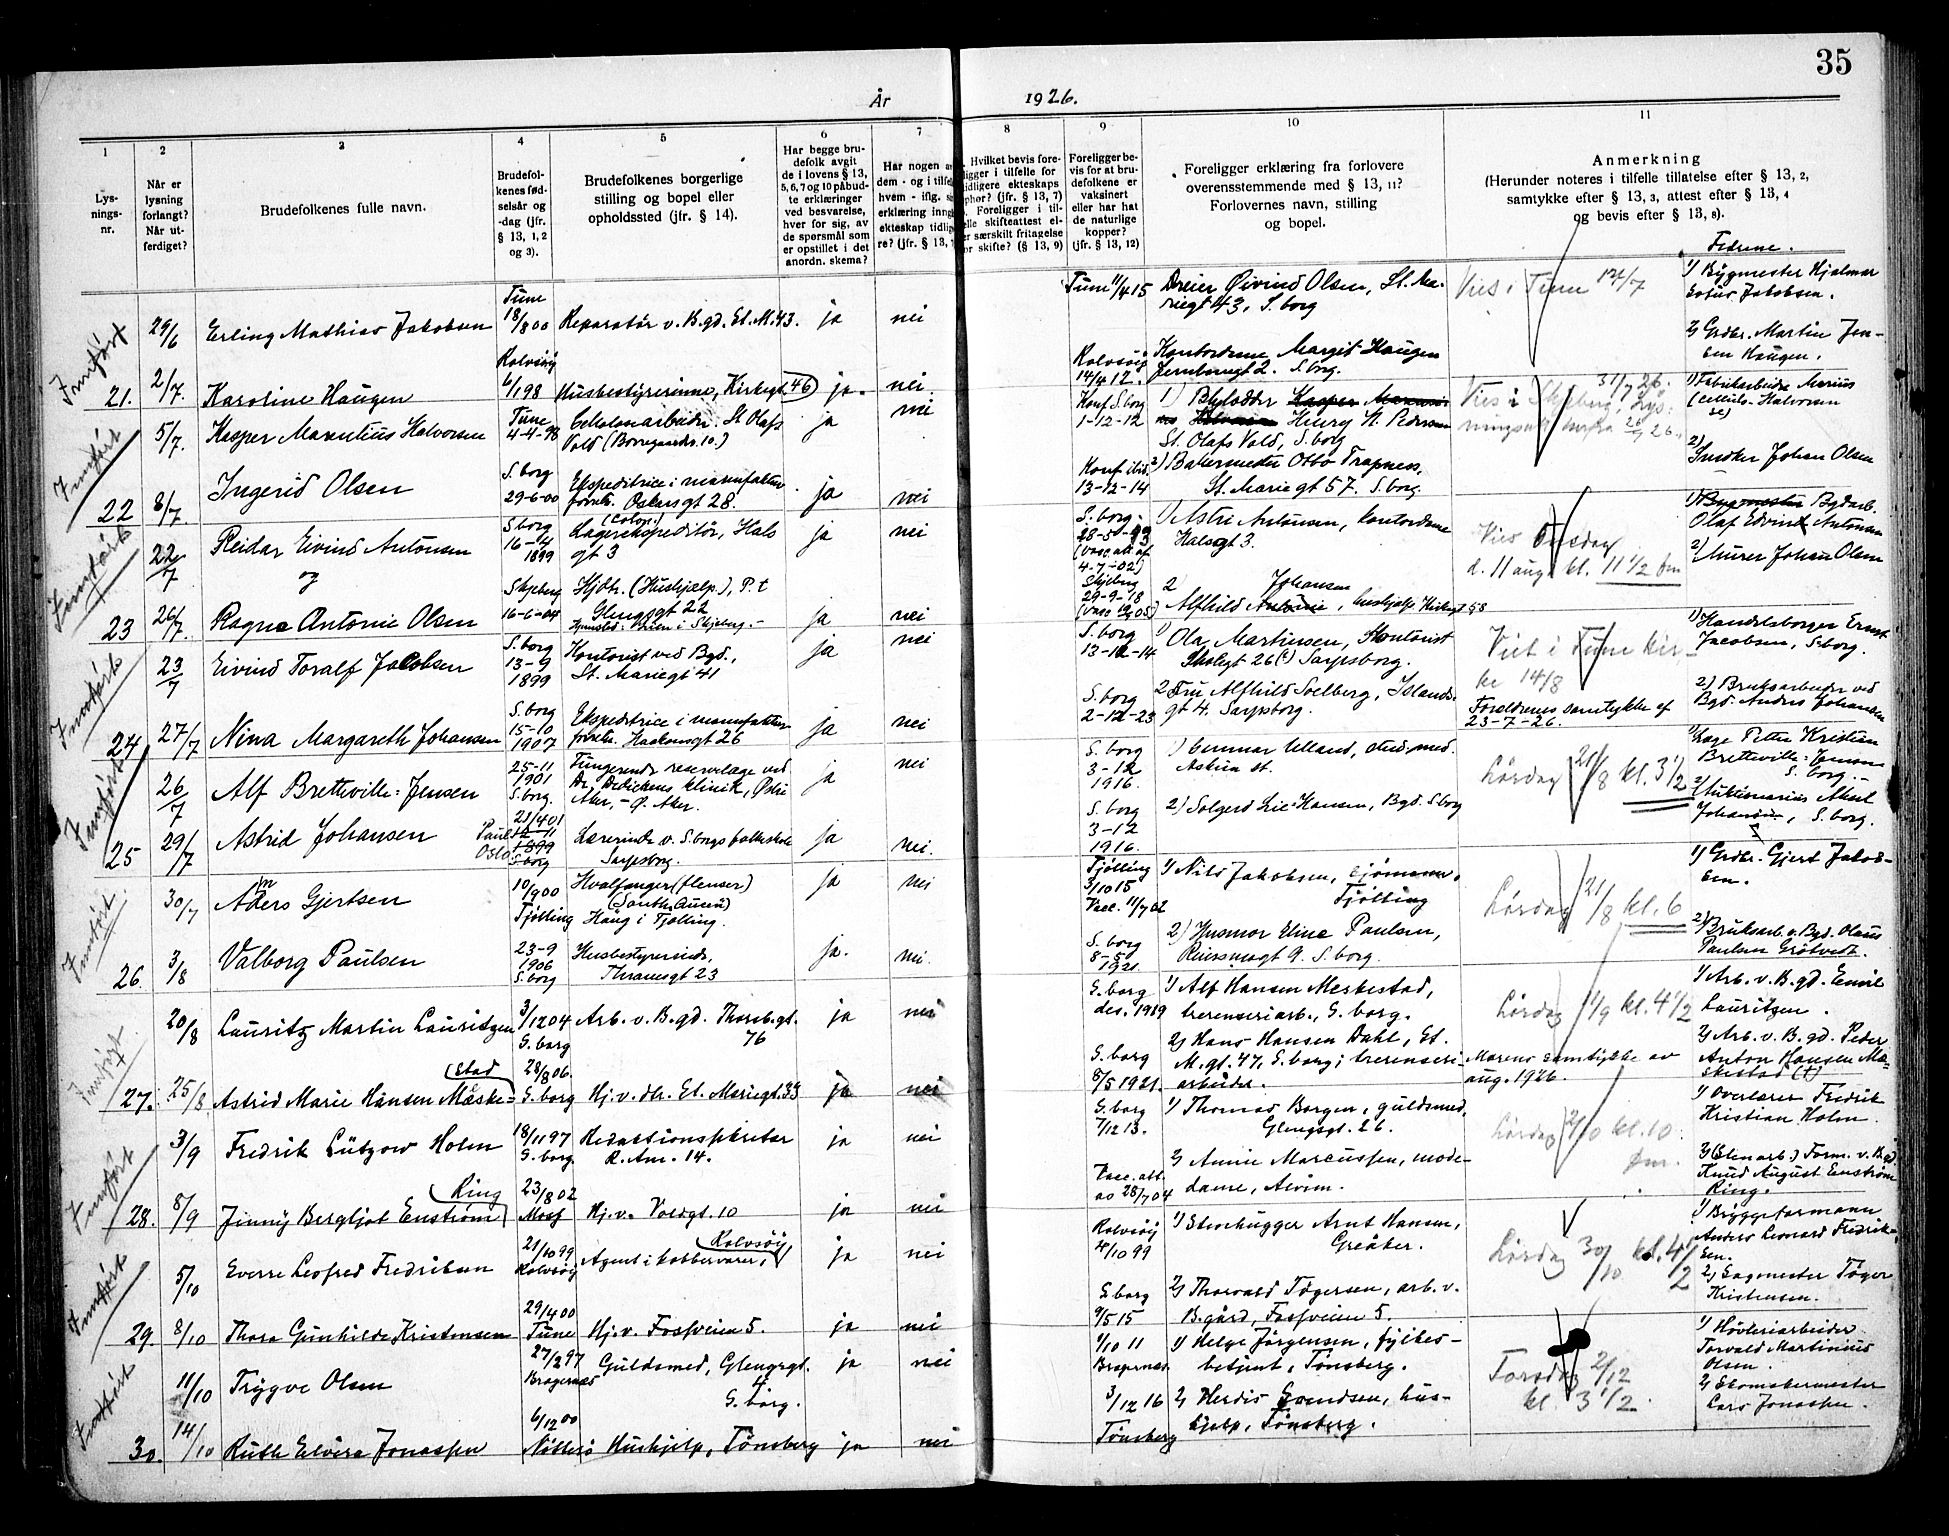 35
År 1926.
1 2 3 4 5 6 7 8 9 10 11
Lys-
nings-
nr.
Når er
lysning
forlangt?
Når ut-
ferdiget?
Brudefolkenes fulle navn.
Brudefol-
kenes fød-
selsår og
-dag (jfr.
§ 13, 1, 2
og 3).
Brudefolkenes borgerlige
stilling og bopel eller
opholdssted (jfr. § 14).
Har begge bru-
defolk avgit
de i lovens § 13,
5, 6, 7 og 10 påbud-
te erklæringer
ved besvarelse,
hver for sig, av
de spørsmål som
er opstillet i det
anordn. skema?
Har nogen av
dem - og i tilfel
hvem - iflg. s
erklæring inng
ekteskap tidlig
re? (jfr. § 13,
Hvilket bevis fore-
ligger i tilfelle for
tidligere ekteskaps
ophør? (jfr. § 13, 7)
Foreligger i til-
elle skifteattest el-
er særskilt fritagelse
or skifte? (§ 13, 9)
Foreligger be-
vis for at bru-
defolkene er
vaksinert
eller har hat
de naturlige
kopper?
(jfr. § 13, 12)
Foreligger erklæring fra forlovere
overensstemmende med § 13, 11?
Forlovernes navn, stilling
og bopel.
Anmerkning
(Herunder noteres i tilfelle tillatelse efter § 13, 2,
samtykke efter § 13, 3, attest efter § 13, 4
og bevis efter § 13, 8).
Fedrene.
Innført
29/6 Erling Mathias Jakobsen
Tune
18/8 00
Reparatør v. B.gd. St. M. 43. ja nei
Tune 11/4 15
Dreier Øivind Olsen, St. Ma-
riegt 43, S.borg
Vies i Tune 17/7
1/ Bygmester Hjalmar
Jakobsen.
21. 2/7. Karoline Haugen
Rolvsøy
6/1 98
Husbestyrerinne, Kirkegt. 46 ja. nei
Rolvsøy
14/4 12.
Kontordame Margit Haugen
Jernbanegt 2. S.borg.
2/ Grdbr. Martin Jen-
sen Haugen.
Innført
5/7. Kasper Marentius Halvorsen
Tune
4-4-98
Celloloscarbeider. St Olafs
Vold (Borregaards. 10.) ja nei
Konf S.borg
1-12-12
1) Henry N. Pedersen
St. Olafs Vold, S.borg
Vies i Skjeberg 31/7 26.
1) Fabrikarbeider Marius
Halvorsen
22 8/7. Ingerid Olsen
S.borg
29-6-00
Ekspeditrice i manufaktur
forretn. Oskarsgt 28. ja nei
Konf ibid.
13-12-14
2) Bakermester Otto Trapness,
St. Mariegt 57. S.borg
2) Snedker Johan Olsen
Innført
22/7 Reidar Eivind Antonsen
og
S.borg
16-4
1899
(Colon.)
Lagerekspeditør, Hals
gt 3 ja nei
S.borg.
28-5-93
(Vacc. att af
4-7-02)
1) Astri Antonsen, kontordame
Halsgt 3.
Vies Onsdag
d. 11 aug kl. 11 1/2 fm
1) Bygmester Bgdarb.
Olaf Edvin Antonsen
23 26/7. Ragna Antonie Olsen
Skjeberg
16-6-04
Hjdtr. (Hushjælp.), P.t
Glengsgt 22
ja nei
Skjeberg
29-9-18
2
Alfhild Johansen, hushjelp Kirkegt 58
2) Murer Johan Olsen
Innført
23/7 Eivind Toralf Jacobsen
S.borg
13-9
1899
Kontorist ved Bgd.,
St. Mariegt 41 ja nei
S.borg
13-12-14
1) Ola Martinsen, Kontorist
Skolegt 26(?) Sarpsborg.
Viet i Tune Kir-
ke 14/8
1) Handelsborger Ernst
Jacobsen, S.borg.
24 27/7 Nina Margareth Johansen
S.borg
15-10
1907
Ekspeditrice i manufaktur
forretn. Haakonsgt 26 ja nei
S.borg
2-12-23
2 Fru Alfhild Solberg, Islands-
gt 4. Sarpsborg.
Foreldrenes samtykke af
23-7-26.
2) Bruksarbeider ved
Bgd. Anders Johansen
Innført
26/7 Alf Bretteville-Jensen
25-11
1901
S.borg.
Fungerende reservelæge ved
Dr. Dedickens klinik, Østre
Aker, - Ø. Aker. ja nei
S.borg
3-12
1916.
1) Gunnar Ulland, stud. med.
Askim st.
Lørdag 21/8 kl. 3 1/2
1) Læge Petter Kristian
Bretteville-Jensen
S.borg.-
25 29/7 Astrid Johansen
Paul
Oslo
21/4 01
12-11
1899
S.borg
Lærerinde v. S.borgs folkeskole
Sarpsborg. ja nei.
S.borg
3-12
1916.
2) Solgerd Lie-Hansen, Bgd. S.borg
2/ Auktionarius Aksel
Johansen, S.borg.
Innført
30/7 Anders Gjertsen
10/9 00
Tjølling
Hvalfanger (flenser)
(South Queen)
Haug i Tjølling. ja nei
Tjølling
3/10 15
Vacc. 11/7 02
1/ Nils Jakobsen, sjømann,
Tjølling
Lørdag 21/8 kl. 6
1/ Grdbr. Gjert Jakob-
sen.
26. 3/8 Valborg Paulsen
23-9
1906
S.borg
Husbestyrerinde,
Thranesgt 23 ja. nei.
S.borg
8-5
1921.
2) Husmor Elina Paulsen,
S.borg.
2) Bruksarb. v. Bgd. Olaus
Paulsen Grøtvedt.
Innført
20/8 Lauritz Martin Lauritzen
3/12 04
S.borg
Arb. v. B.gd. Thornb.gt.
76 ja nei
S.borg
des. 1919
1/ Alf Hansen Meskestad,
trerenseriarb., S.borg.
Lørdag 11/9 kl. 4 1/2
1/ Arb. v. B.gd. Emil
Lauritzen.
27. 25/8 Astrid Marie Hansen Mäske-
stad
28/8 06.
S.borg
Hj. v. dtr. St. Mariegt. 33 ja nei
S.borg
8/5 1921.
2/ Hans Hansen Dahl, St.
M.gt. 47, S.borg; trerenseri-
arbeider.
Morens samtykke av
aug. 1926.
2/ Arb. v. B.gd. Peder
Anton Hansen Mä-
skestad (+)
Innført
3/9 Fredrik Lützow Holm
18/11 97
S.borg.
Redaktionssekretær
R. Am. 14. ja nei
S.borg
7/12 13.
1/ Thomas Borgen, guldsmed,
Glengsgt. 26.
Lørdag 2/10 kl. 10
fm.
1/ Overlærer Fredrik
Kristian Holm.
28. 8/9 Jinny Bergljot Enstrøm
Ring
23/8 02
Moss
Hj. v. Voldgt. 10 ja nei
Vacc. att.
av 28/7 04
2/ Annie Marcussen, mode-
dame, Alvim.
2/ (Stenarb.) Form. v. B.gd.
Knud August Enstrøm
Ring.
Innført
5/10 Sverre Leofred Fredriksen
21/10 99
Rolvsøy
Agent i kobbervarer,
Rolvsøy ja nei
Rolvsøy
4/10 99
1/ Stenhugger Arnt Hansen,
Greåker.
Lørdag 30/10 kl. 4 1/2
1/ Bryggeformann
Anders Leonard Fredrik-
sen.
29. 8/10 Thora Gunhilde Kristensen
29/4 00
Tune
Hj. v. Fossveien 5. ja nei
S.borg
9/5 15
2/ Thorvald Tøgersen, arb. v.
B.gård, Fossveien 5.
2/ Sagmester Tøger
Kristensen.
Innført
11/10 Trygve Olsen
27/2 97
Bragernes
Guldsmed, Glengsgt.
4
S.borg. ja nei
1/10 11
Bragernes
1/ Helge Jørgensen, fylkes-
betjent, Tønsberg.
Torsdag 2/12
kl. 3 1/2.
1/ Høvleriarbeider
Torvald Martinius
Olsen.
30. 14/10 Ruth Elvira Jonassen
6/12 00
Nøtterø
Hushjelp, Tønsberg ja nei
3/12 16
Tønsberg
2/ Herdis Svendsen, hus-
hjelp, Tønsberg.
2/ Skomakermester
Lars Jonassen.